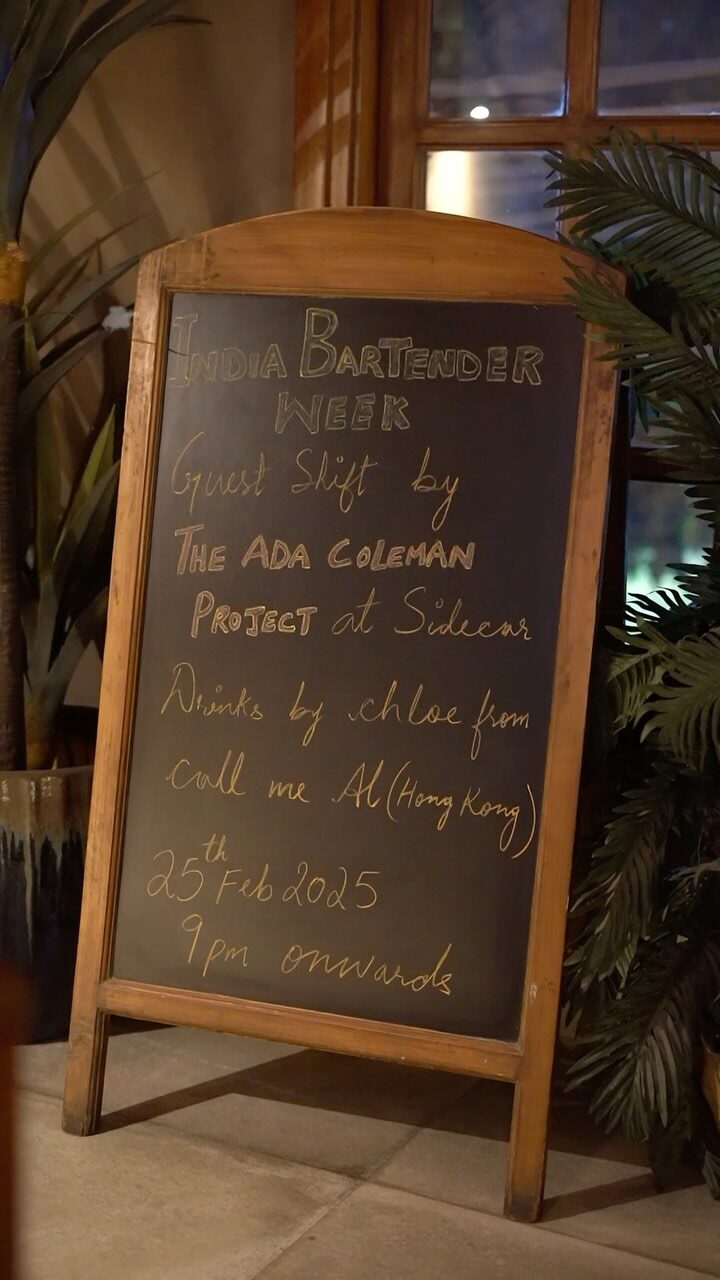 INDIA BARTENDER
WEEK
Guest Shift by
THE ADA COLEMAN
PROJECT at Sidecar
Drinks by chloe from
call me Al (Hong Kong)
25th Feb 2025
9pm onwards